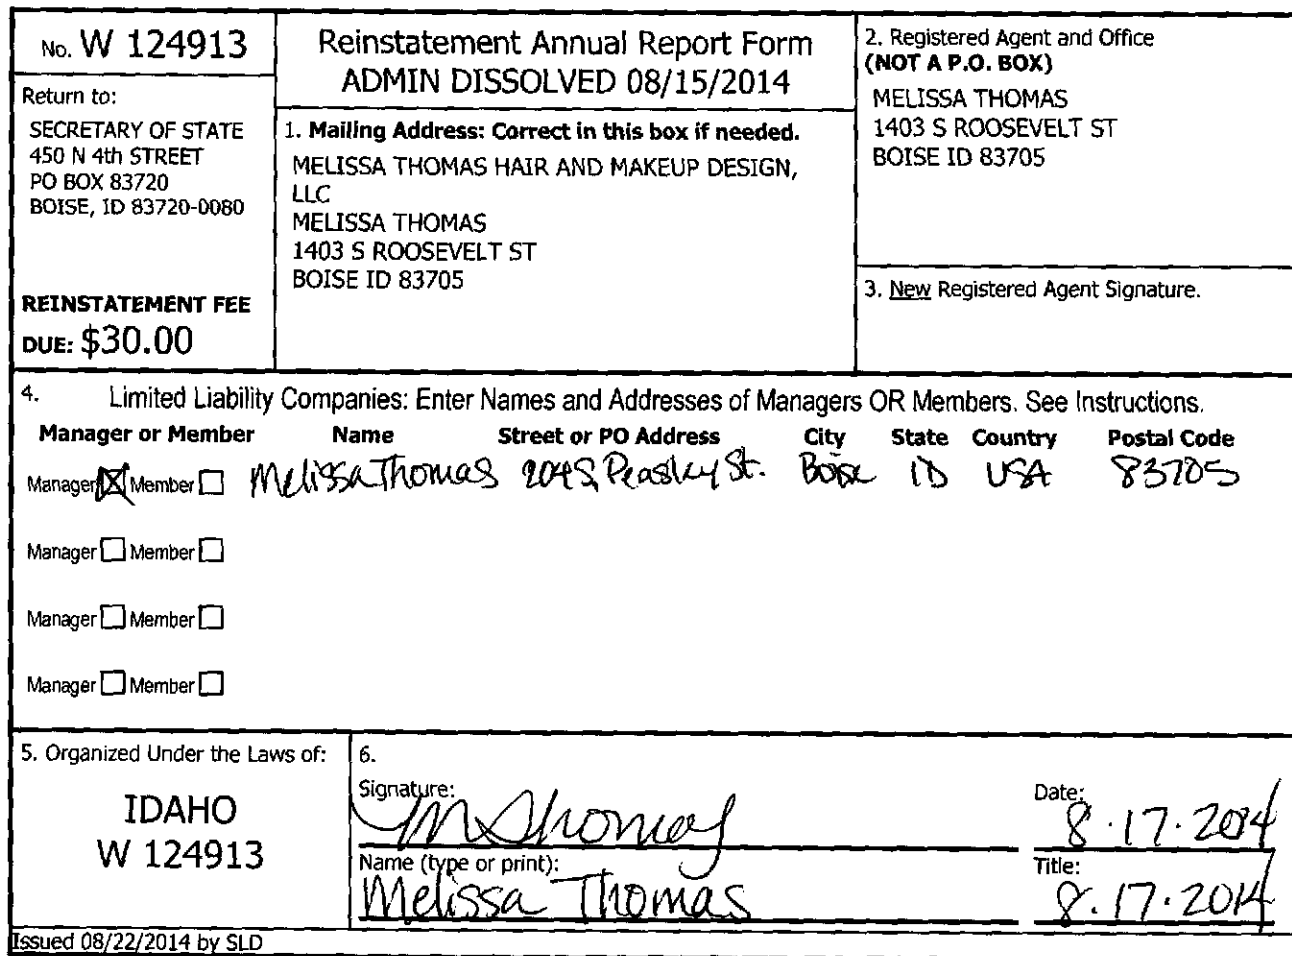 No. W 124913
Return to:
SECRETARY OF STATE
450 N 4th STREET
PO BOX 83720
BOISE, ID 83720-0080
REINSTATEMENT FEE
DUE: $30.00
Reinstatement Annual Report Form
ADMIN DISSOLVED 08/15/2014
1. Mailing Address: Correct in this box if needed.
MELISSA THOMAS HAIR AND MAKEUP DESIGN,
LLC
MELISSA THOMAS
1403 S ROOSEVELT ST
BOISE ID 83705
2. Registered Agent and Office
(NOT A P.O. BOX)
MELISSA THOMAS
1403 S ROOSEVELT ST
BOISE ID 83705
3. New Registered Agent Signature.
4. Limited Liability Companies: Enter Names and Addresses of Managers OR Members. See Instructions.
Manager or Member Name Street or PO Address City State Country Postal Code
Manager Member Melissa Thomas 204 S. Peasley St. Boise ID USA 83705
Manager Member
Manager Member
Manager Member
5. Organized Under the Laws of:
IDAHO
W 124913
6.
Signature: M Thomas
Date: 8.17.2014
Name (type or print): Melissa Thomas
Title: 8.17.2014
Issued 08/22/2014 by SLD